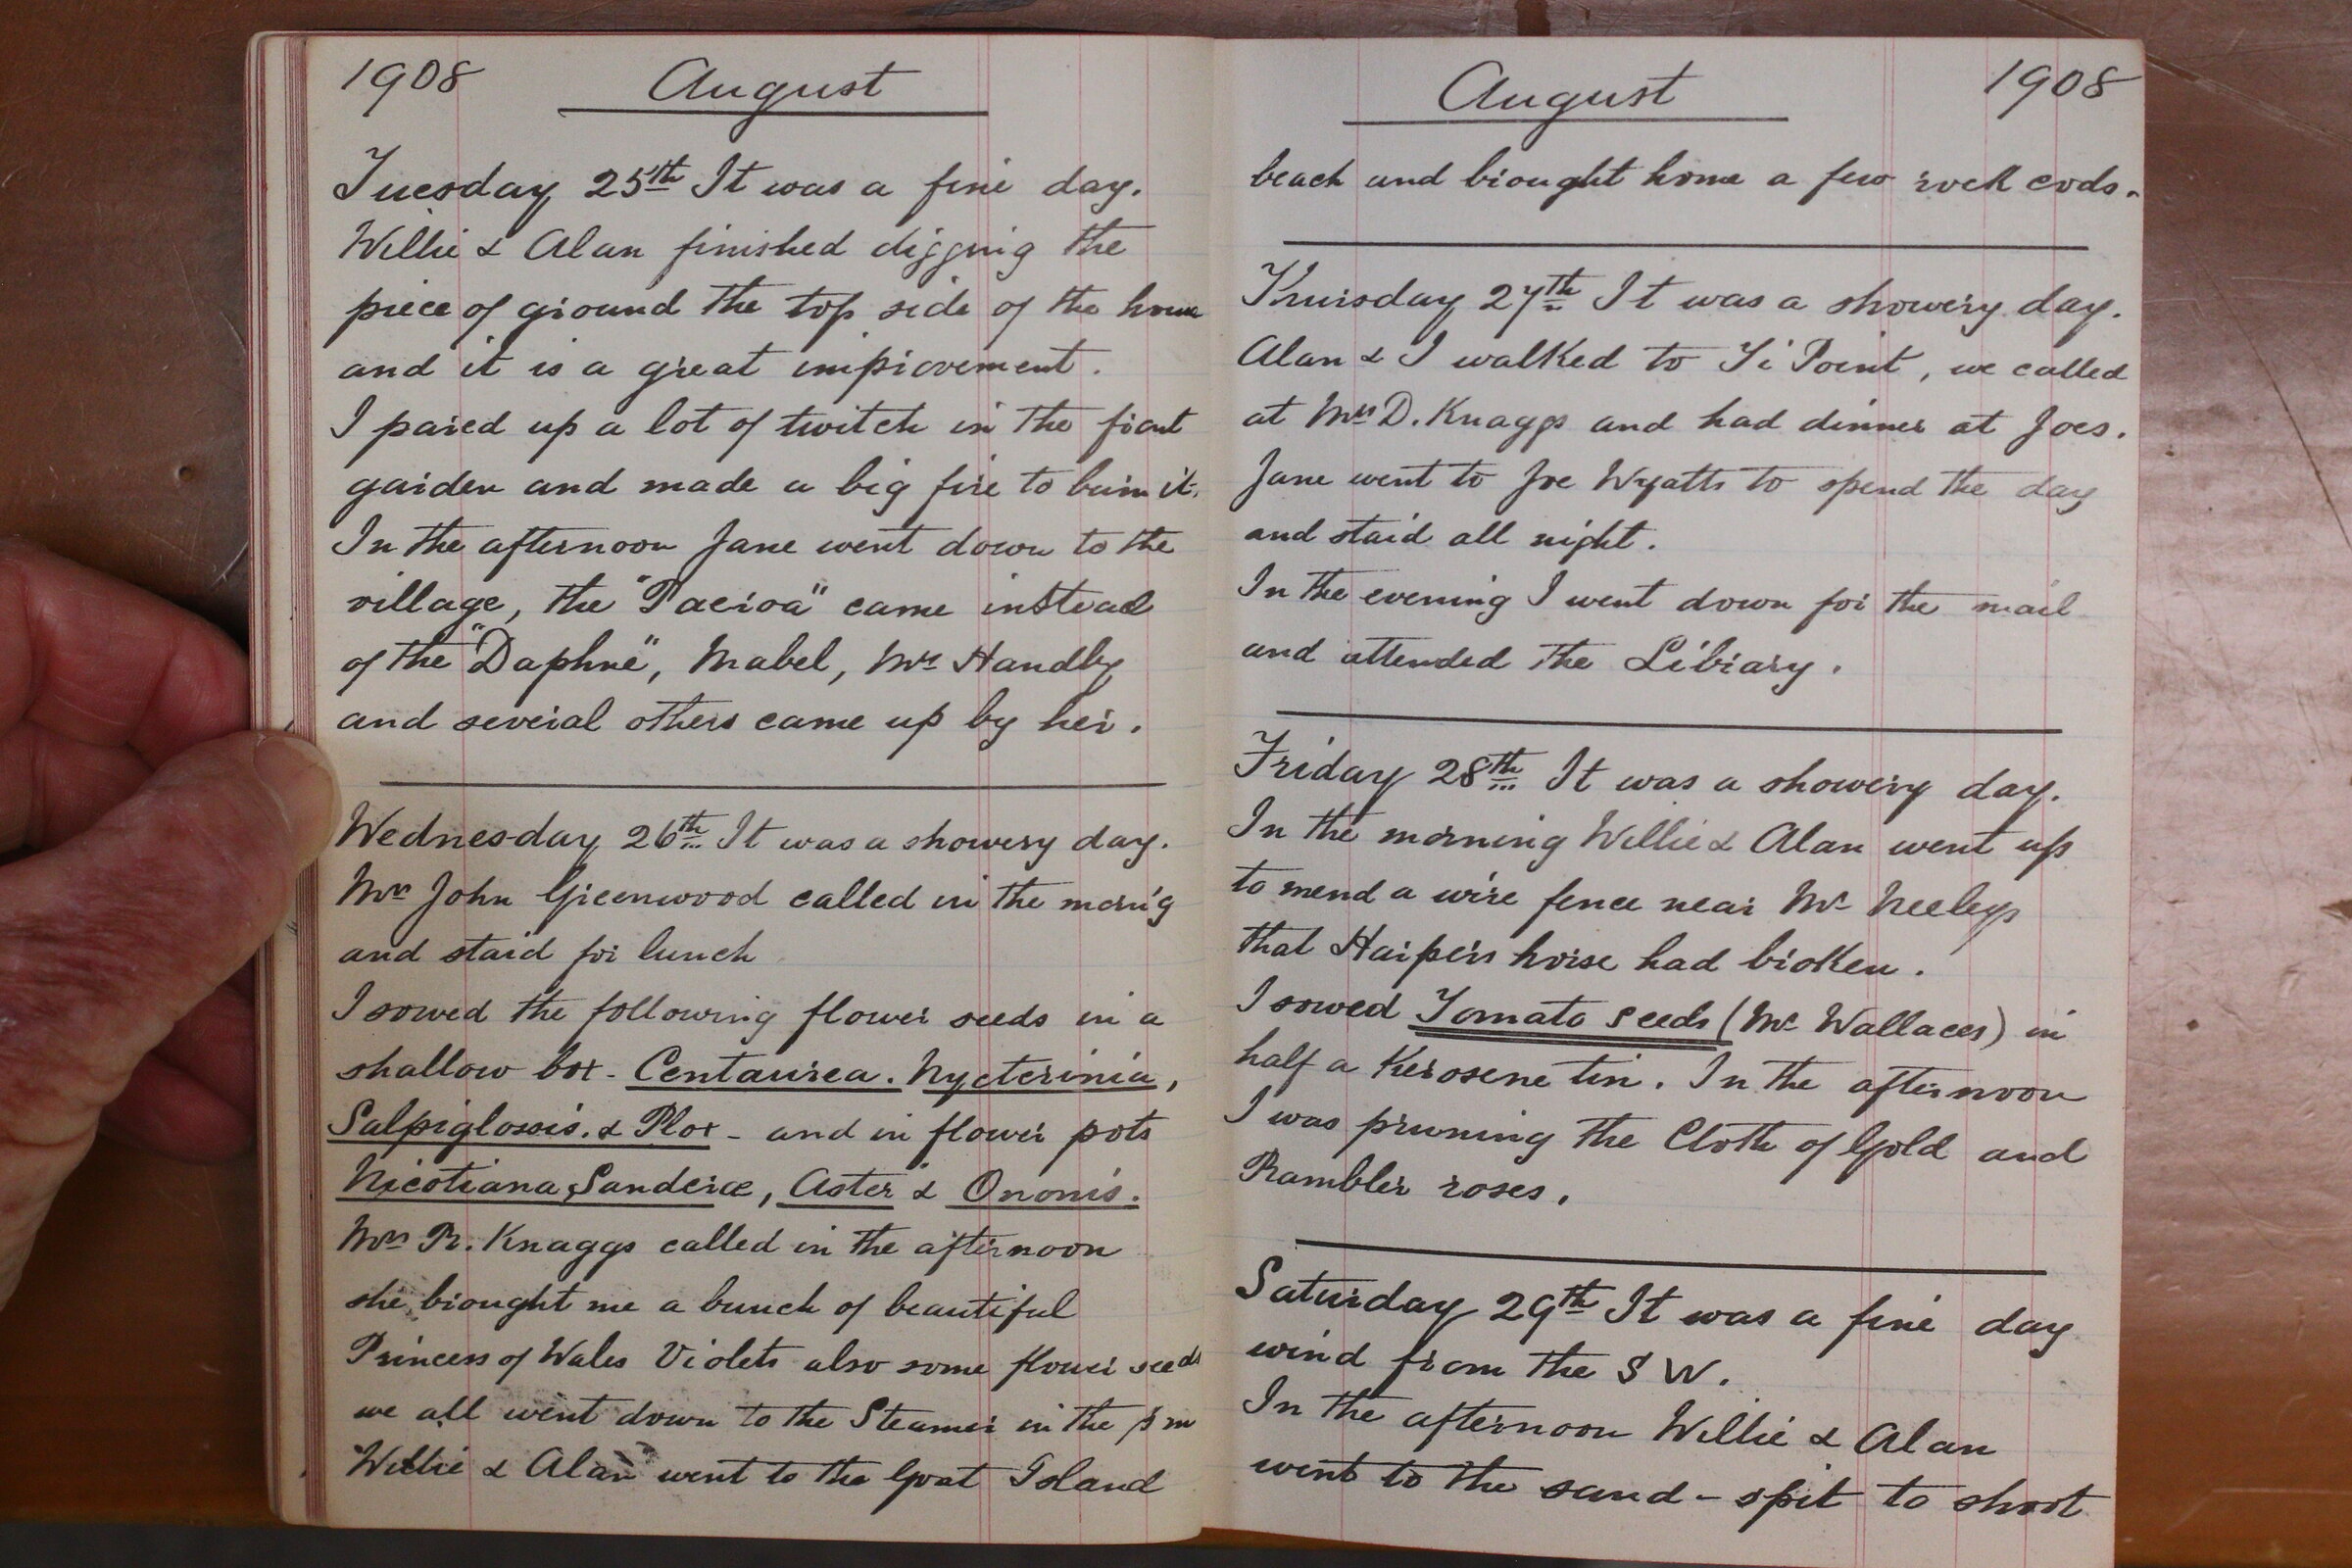 1908 August
Tuesday 25th It was a fine day.
Willie & Alan finished digging the
piece of ground the top side of the house
and it is a great improvement.
I pared up a lot of twitch in the front
garden and made a big fire to burn it.
In the afternoon Jane went down to the
village, the "Paeroa" came instead
of the "Daphne", Mabel, Mrs Handley
and several others came up by her.
Wednesday 26th It was a showery day.
Mrs John Greenwood called in the morn'g
and staid for lunch
I sowed the following flower seeds in a
shallow box - Centaurea. Nycterinia,
Salpiglossis. & Plox - and in flower pots
Nicotiana Sanderae, Aster & Ononis.
Mrs R. Knaggs called in the afternoon
she brought me a bunch of beautiful
Princess of Wales Violets also some flower seeds
we all went down to the Steamer in the pm
Willie & Alan went to the Goat Island
August 1908
beach and brought home a few rock cods.
Thursday 27th It was a showery day.
Alan & I walked to Ti Point, we called
at Mrs D. Knaggs and had dinner at Joes.
Jane went to Joe Wyatts to spend the day
and staid all night.
In the evening I went down for the mail
and attended the Library.
Friday 28th It was a showery day.
In the morning Willie & Alan went up
to mend a wire fence near Mr Neeleys
that Harpers horse had broken.
I sowed Tomato seeds (Mr Wallaces) in
half a Kerosene tin. In the afternoon
I was pruning the Cloth of Gold and
Rambler roses.
Saturday 29th It was a fine day
wind from the S W.
In the afternoon Willie & Alan
went to the sand-spit to shoot